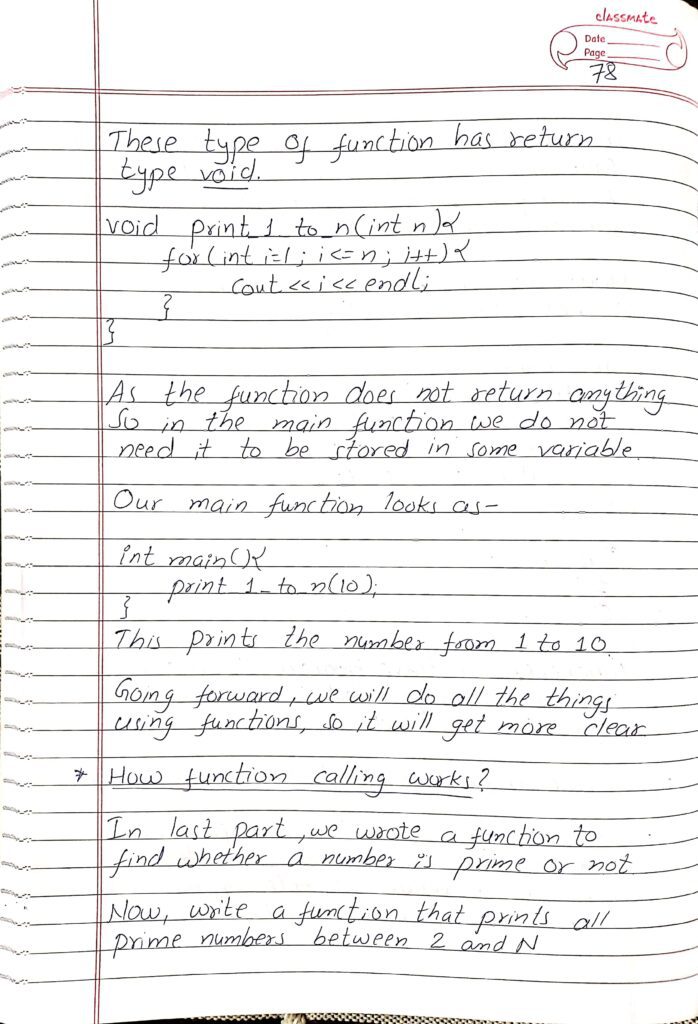 classmate
Date
Page
78
These type of function has return
type void.
void print_1_to_n(int n){
for(int i=1; i<=n; i++){
cout<<i<<endl;
}
}
As the function does not return anything
So in the main function we do not
need it to be stored in some variable.
Our main function looks as-
int main(){
print_1_to_n(10);
}
This prints the number from 1 to 10.
Going forward, we will do all the things
using functions, so it will get more clear
* How function calling works?
In last part, we wrote a function to
find whether a number is prime or not.
Now, write a function that prints all
prime numbers between 2 and N